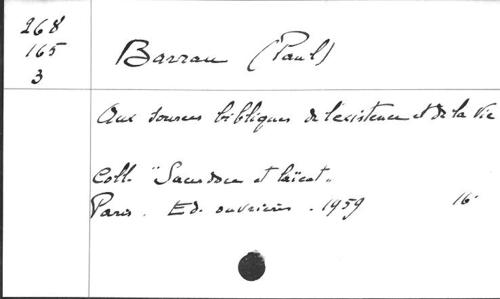 268
165
3
Barrau (Paul)
Aux sources bibliques de l'existence et de la Vie
Coll. "Sacerdoce et laïcat"
Paris. Ed. ouvrières. 1959 16°